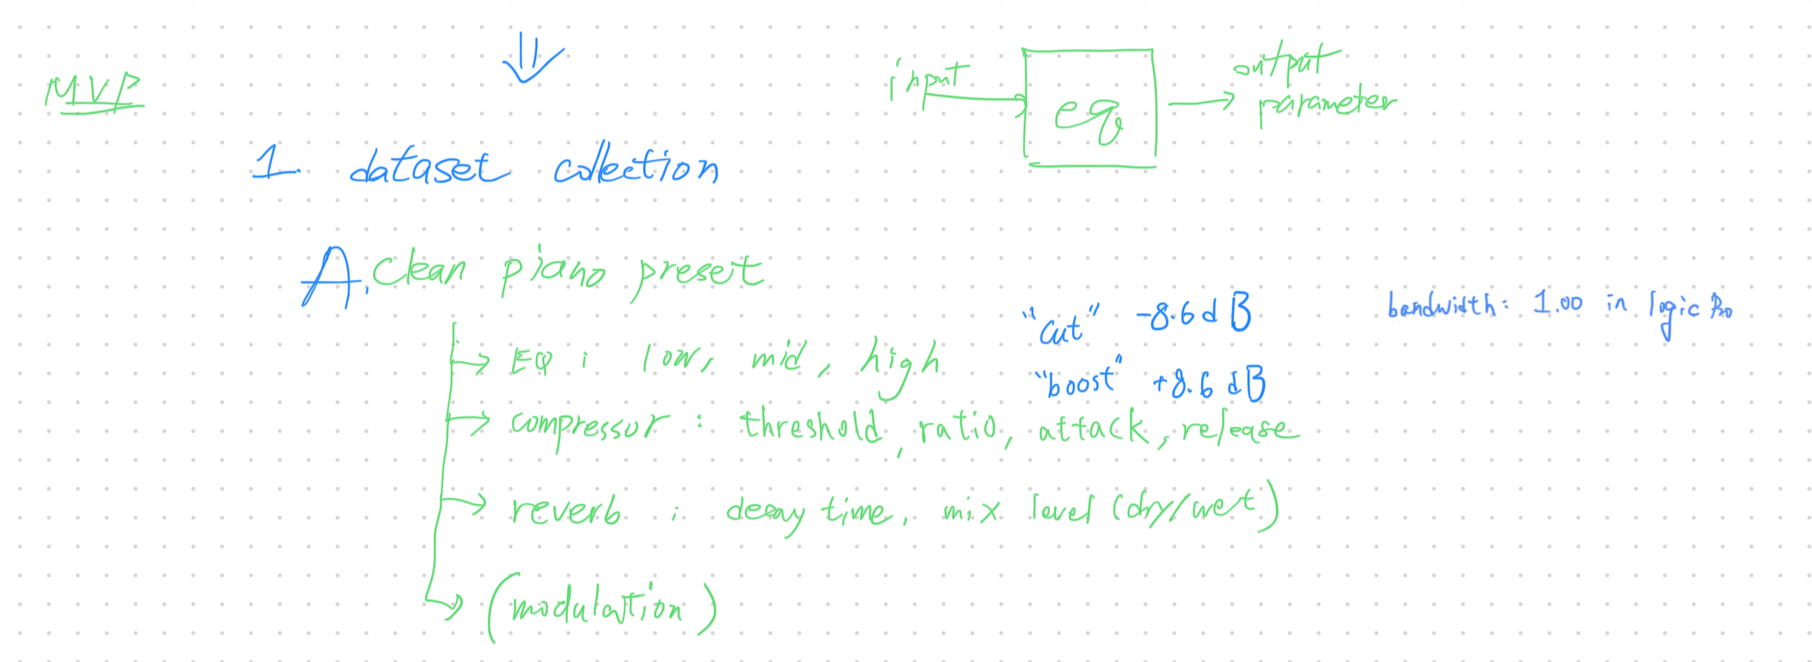 MVP
input
eq
output
parameter
1. dataset collection
A. Clean piano preset
"cut" -8.6 dB
bandwidth: 1.00 in logic Pro
EQ : low, mid, high
"boost" +8.6 dB
compressor : threshold, ratio, attack, release
reverb : decay time, mix level (dry/wet)
(modulation)